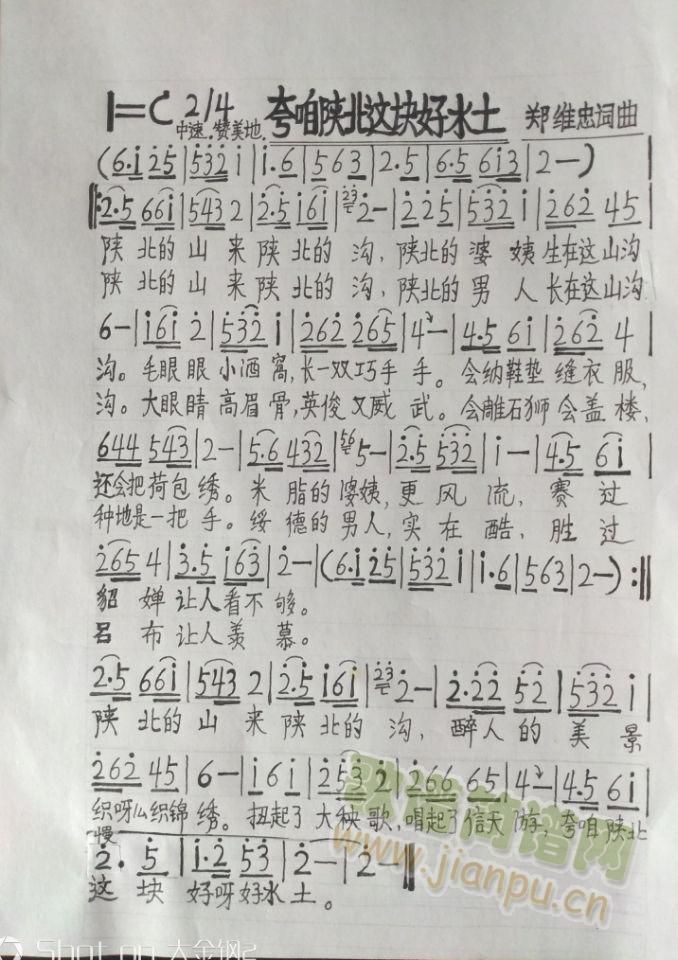 1=C 2/4 夸咱陕北这块好水土 郑维忠词曲
中速.赞美地.
(6·i 25|532i|i·6|563|2·5|6·5 6i3|2—)|
‖:2·5 66i|543 2|2·5 i6i|232—|225|532 i|262 45
陕北的山来陕北的沟,陕北的婆姨生在这山沟
陕北的山来陕北的沟,陕北的男人长在这山沟
6—|i6i 2|532 i|262 265|4—|4·5 6i|262 4|
沟。毛眼眼小酒窝,长一双巧手手。会纳鞋垫缝衣服,
沟。大眼睛高眉骨,英俊又威武。会雕石狮会盖楼,
644 543|2—|5·6 432|565—|2·5 532|i—|4·5 6i|
还会把荷包绣。米脂的婆姨,更风流,赛过
种地是一把手。绥德的男人,实在酷,胜过
265 4|3·5 i63|2—|(6·i 25|532 i|i·6|563|2—):‖
貂婵让人看不够。
吕布让人羡慕。
2·5 66i|543 2|2·5 i6i|232—|2·22 52|532 i|
陕北的山来陕北的沟,醉人的美景
262 45|6—|i6i|253 2|266 65|4—|4·5 6i|
织呀么织锦绣。扭起了大秧歌,唱起了信天游,夸咱陕北
慢
2· 5|i·2 53|2—|2—‖
这块好呀好水土。
www.jianpu.cn
Shot on 大金钢2